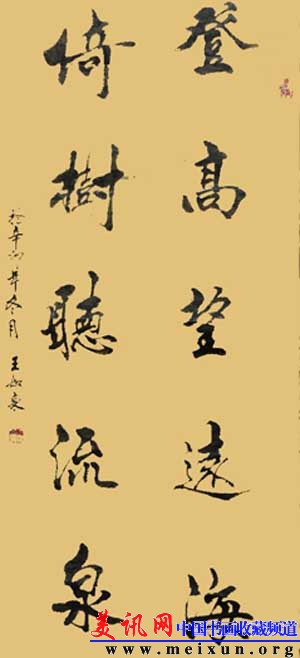 登高望遠海
倚樹聽流泉
冬月 王如泉
美讯网 中国书画收藏频道
www.meixun.org